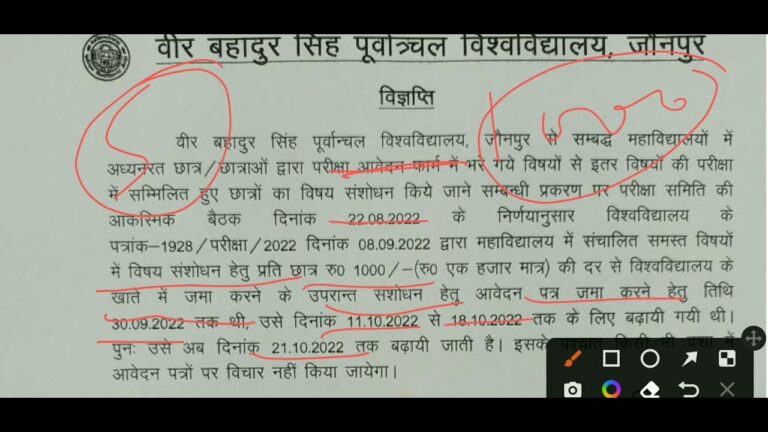 वीर बहादुर सिंह पूर्वाञ्चल विश्वविद्यालय, जौनपुर
विज्ञप्ति
वीर बहादुर सिंह पूर्वान्चल विश्वविद्यालय, जौनपुर से सम्बद्ध महाविद्यालयों में
अध्यनरत छात्र/छात्राओं द्वारा परीक्षा आवेदन फार्म में भरे गये विषयों से इतर विषयों की परीक्षा
में सम्मिलित हुए छात्रों का विषय संशोधन किये जाने सम्बन्धी प्रकरण पर परीक्षा समिति की
आकस्मिक बैठक दिनांक 22.08.2022 के निर्णयानुसार विश्वविद्यालय के
पत्रांक-1928/परीक्षा/2022 दिनांक 08.09.2022 द्वारा महाविद्यालय में संचालित समस्त विषयों
में विषय संशोधन हेतु प्रति छात्र रु0 1000/-(रु0 एक हजार मात्र) की दर से विश्वविद्यालय के
खाते में जमा करने के उपरान्त संशोधन हेतु आवेदन पत्र जमा करने हेतु तिथि
30.09.2022 तक थी, उसे दिनांक 11.10.2022 से 18.10.2022 तक के लिए बढ़ायी गयी थी।
पुनः उसे अब दिनांक 21.10.2022 तक बढ़ायी जाती है। इसके पश्चात किसी भी दशा में
आवेदन पत्रों पर विचार नहीं किया जायेगा।